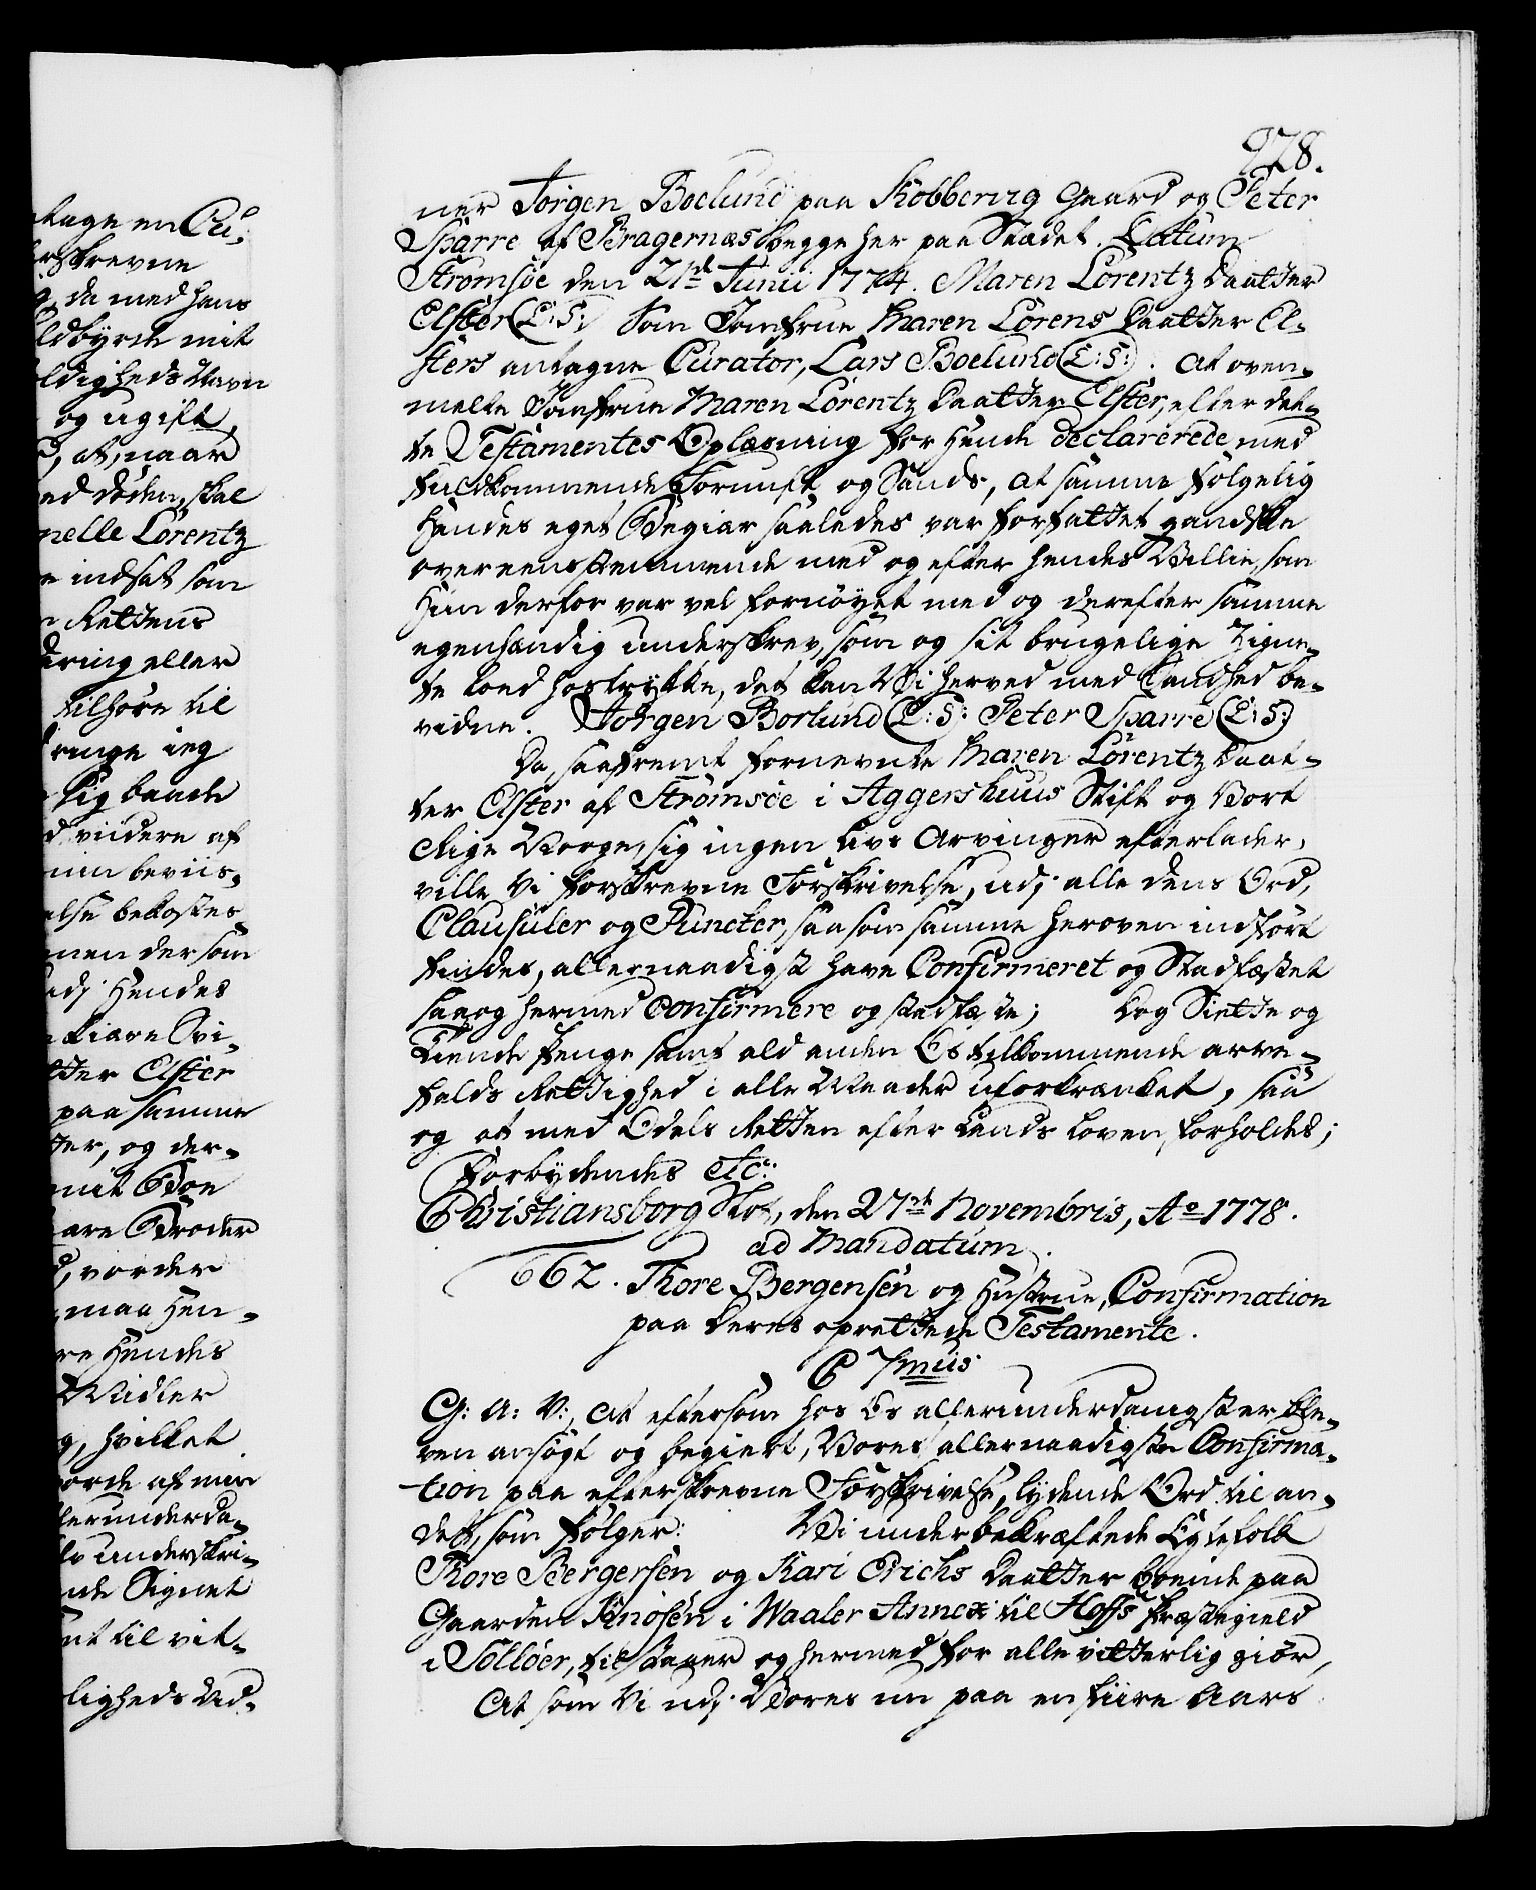 928.
ner Jörgen Boelund paa Kobbervig Gaard og Peter
Sparre af Bragernæs begge her paa Stædet. Datum
Strömsöe den 21de Junii 1774. Maren Lörentz Daatter
Elster (L:S:) Som Jomfrue Maren Lörens Daatter El-
sters antagne Curator, Lars Boelund (L:S:). At oven-
melte Jomfrue Maren Lörentz Daatter Elster, efter det-
te Testamentes Oplæsning for Hende declarerede med
fuldkommende Fornuft og Sands, at samme fölgelig
Hendes eget Begiær saaledes var forfattet gandske
overeensstemmende med og efter hendes Villie, som
Hun derfor var vel fornöyet med og derefter samme
egenhændig underskrev, som og sit brugelige Zigne-
te loed hostrykke, det kan Vi herved med Sandhed be-
vidne. Jörgen Borlund (L:S: Peter Sparre (L:S:)
Da, saafremt fornevnte Maren Lörentz Daat-
ter Elster af Strömsöe i Aggershuus Stift og Vort
Rige Norge, sig ingen Livs Arvinger efterlader,
ville Vi forskrevne Forskrivelse, udj alle dens Ord,
Clausuler og Puncter, saasom samme heroven indfört
findes, allernaadigst have Confirmeret og Stadfæstet
saa og hermed Confirmere og stadfæste; Dog Siette og
Tiende Penge samt ald anden Os tilkommende arve-
falds Rettighed i alle Maader uforkrænket, saa
og at med Odels Retten efter Lands Loven forholdes;
Forbydendes Etc:
Christiansborg Slot, den 27de Novembris, Ao 1778.
ad Mandatum.
662. Thore Bergensen og Hustrue, Confirmation
paa deres oprettede Testamente.
C 7mus
G: A: V:, At eftersom hos Os allerunderdanigst er ble-
ven ansögt og begiert, Vores allernaadigste Confirma-
tion paa efterskrevne Forskrivelse, lydende Ord til an-
det, som fölger: Vi underbekræftede Egtefolk
Thore Bergersen og Kari Erichs Daatter boende paa
Gaarden Knosen i Waaler Annex til Hoffs Præstegield
i Sollöer, tilstaaer og hermed for alle vitterlig giör,
At som Vi udj Vores nu paa en fiire Aars